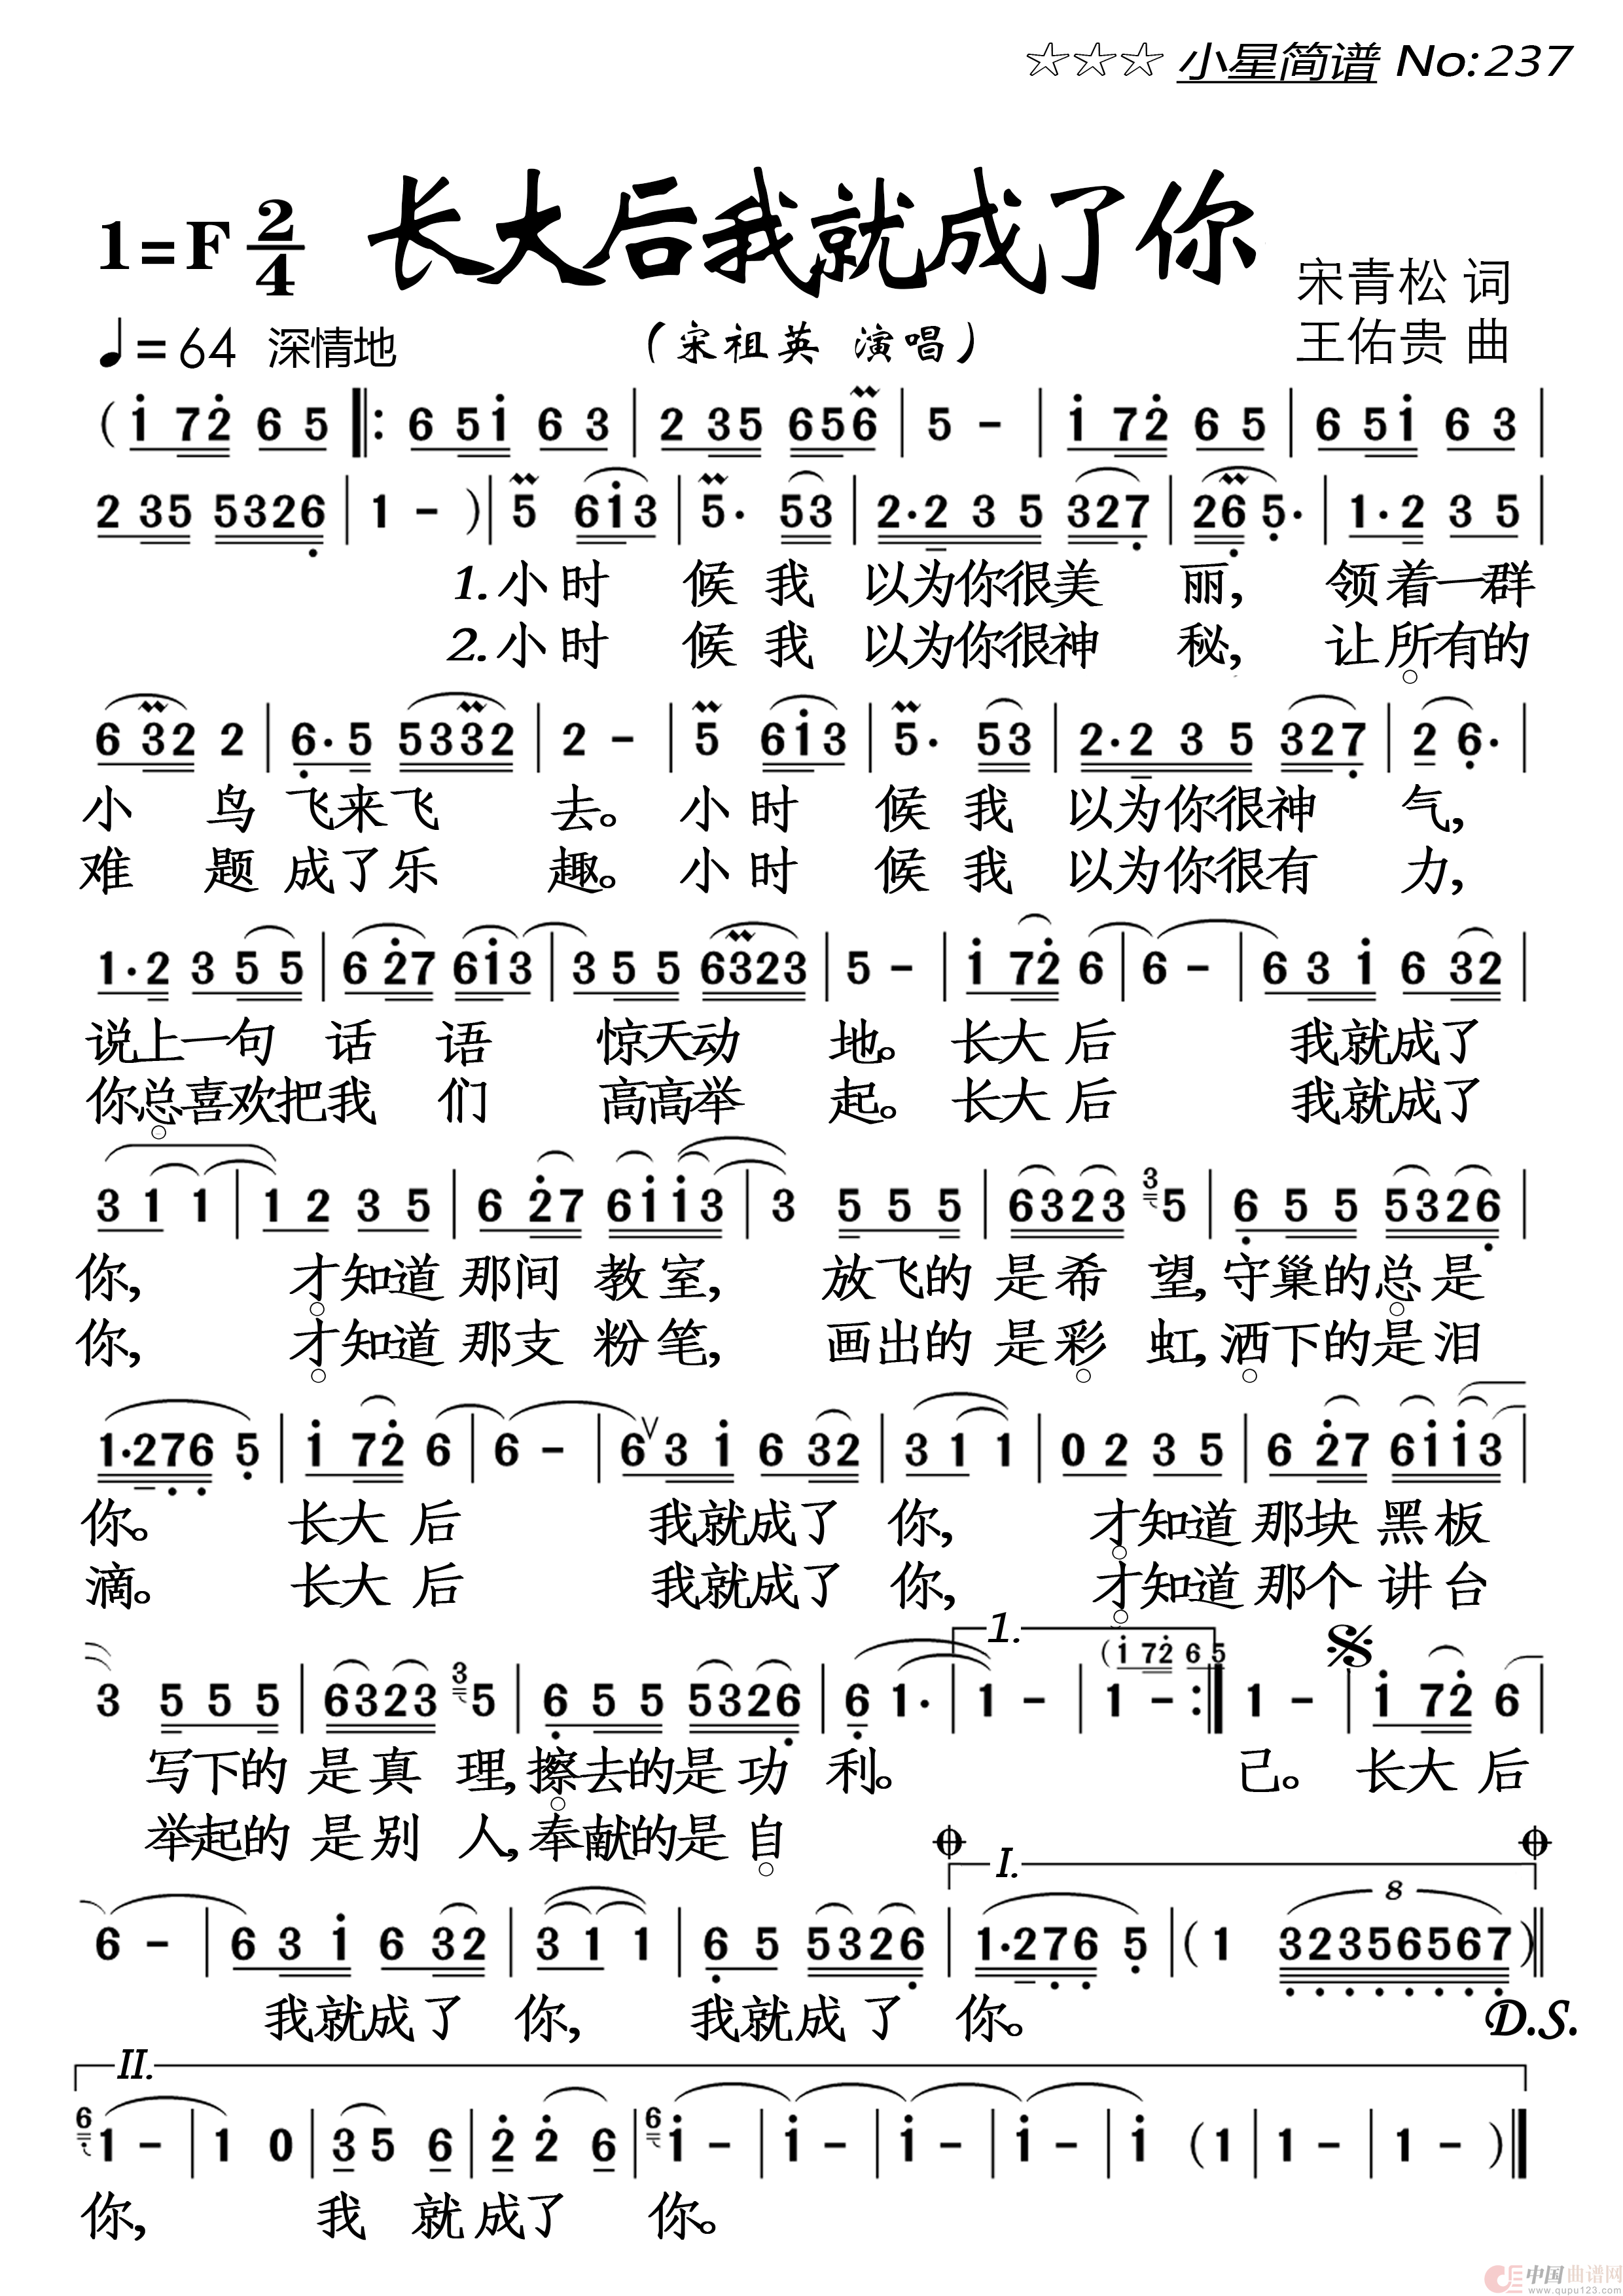 ☆☆☆ 小星简谱 No:237
1=F 2/4 长大后我就成了你
宋青松 词
♩=64 深情地 (宋祖英 演唱) 王佑贵 曲
( i 72 6 5 ‖: 6 5i 6 3 | 2 35 656 | 5 - | i 72 6 5 | 6 5i 6 3 |
2 35 5326 | 1 - )| 5 6i3 | 5. 53 | 2.2 3 5 327 | 26 5. | 1.2 3 5 |
1.小时 候我 以为你很美 丽, 领着一群
2.小时 候我 以为你很神 秘, 让所有的
6 32 2 | 6.5 5332 | 2 - | 5 6i3 | 5. 53 | 2.2 3 5 327 | 2 6. |
小 鸟 飞来飞 去。 小时 候我 以为你很神 气,
难 题 成了乐 趣。 小时 候我 以为你很有 力,
1.2 3 5 5 | 6 27 6i3 | 3 5 5 6323 | 5 - | i 72 6 | 6 - | 6 3 i 6 32 |
说上一句 话 语 惊天动 地。 长大后 我就成了
你总喜欢把我 们 高高举 起。 长大后 我就成了
3 1 1 | 1 2 3 5 | 6 27 6ii3 | 3 5 5 5 | 6323 3 5 | 6 5 5 5326 |
你, 才知道 那间 教室, 放飞的 是希 望,守巢的总是
你, 才知道 那支 粉笔, 画出的 是彩 虹,洒下的是泪
1.276 5 | i 72 6 | 6 - | 6 V 3 i 6 32 | 3 1 1 | 0 2 3 5 | 6 27 6ii3 |
你。 长大后 我就成了 你, 才知道 那块 黑板
滴。 长大后 我就成了 你, 才知道 那个 讲台
1. (i 72 6 5
3 5 5 5 | 6323 3 5 | 6 5 5 5326 | 6 1. | 1 - | 1 - :‖ 1 - | i 72 6 |
写下的 是真 理,擦去的是功 利。 己。 长大后
举起的 是别 人,奉献的是自
I. 8
6 - | 6 3 i 6 32 | 3 1 1 | 6 5 5326 | 1.276 5 | ( 1 32356567 )‖
我就成了 你, 我就成了 你。 D.S.
II.
6 1 - | 1 0 | 3 5 6 | 2 2 6 | 6 i - | i - | i - | i - | i (1 | 1 - | 1 - )‖
你, 我 就成了 你。
中国曲谱网
www.qupu123.com